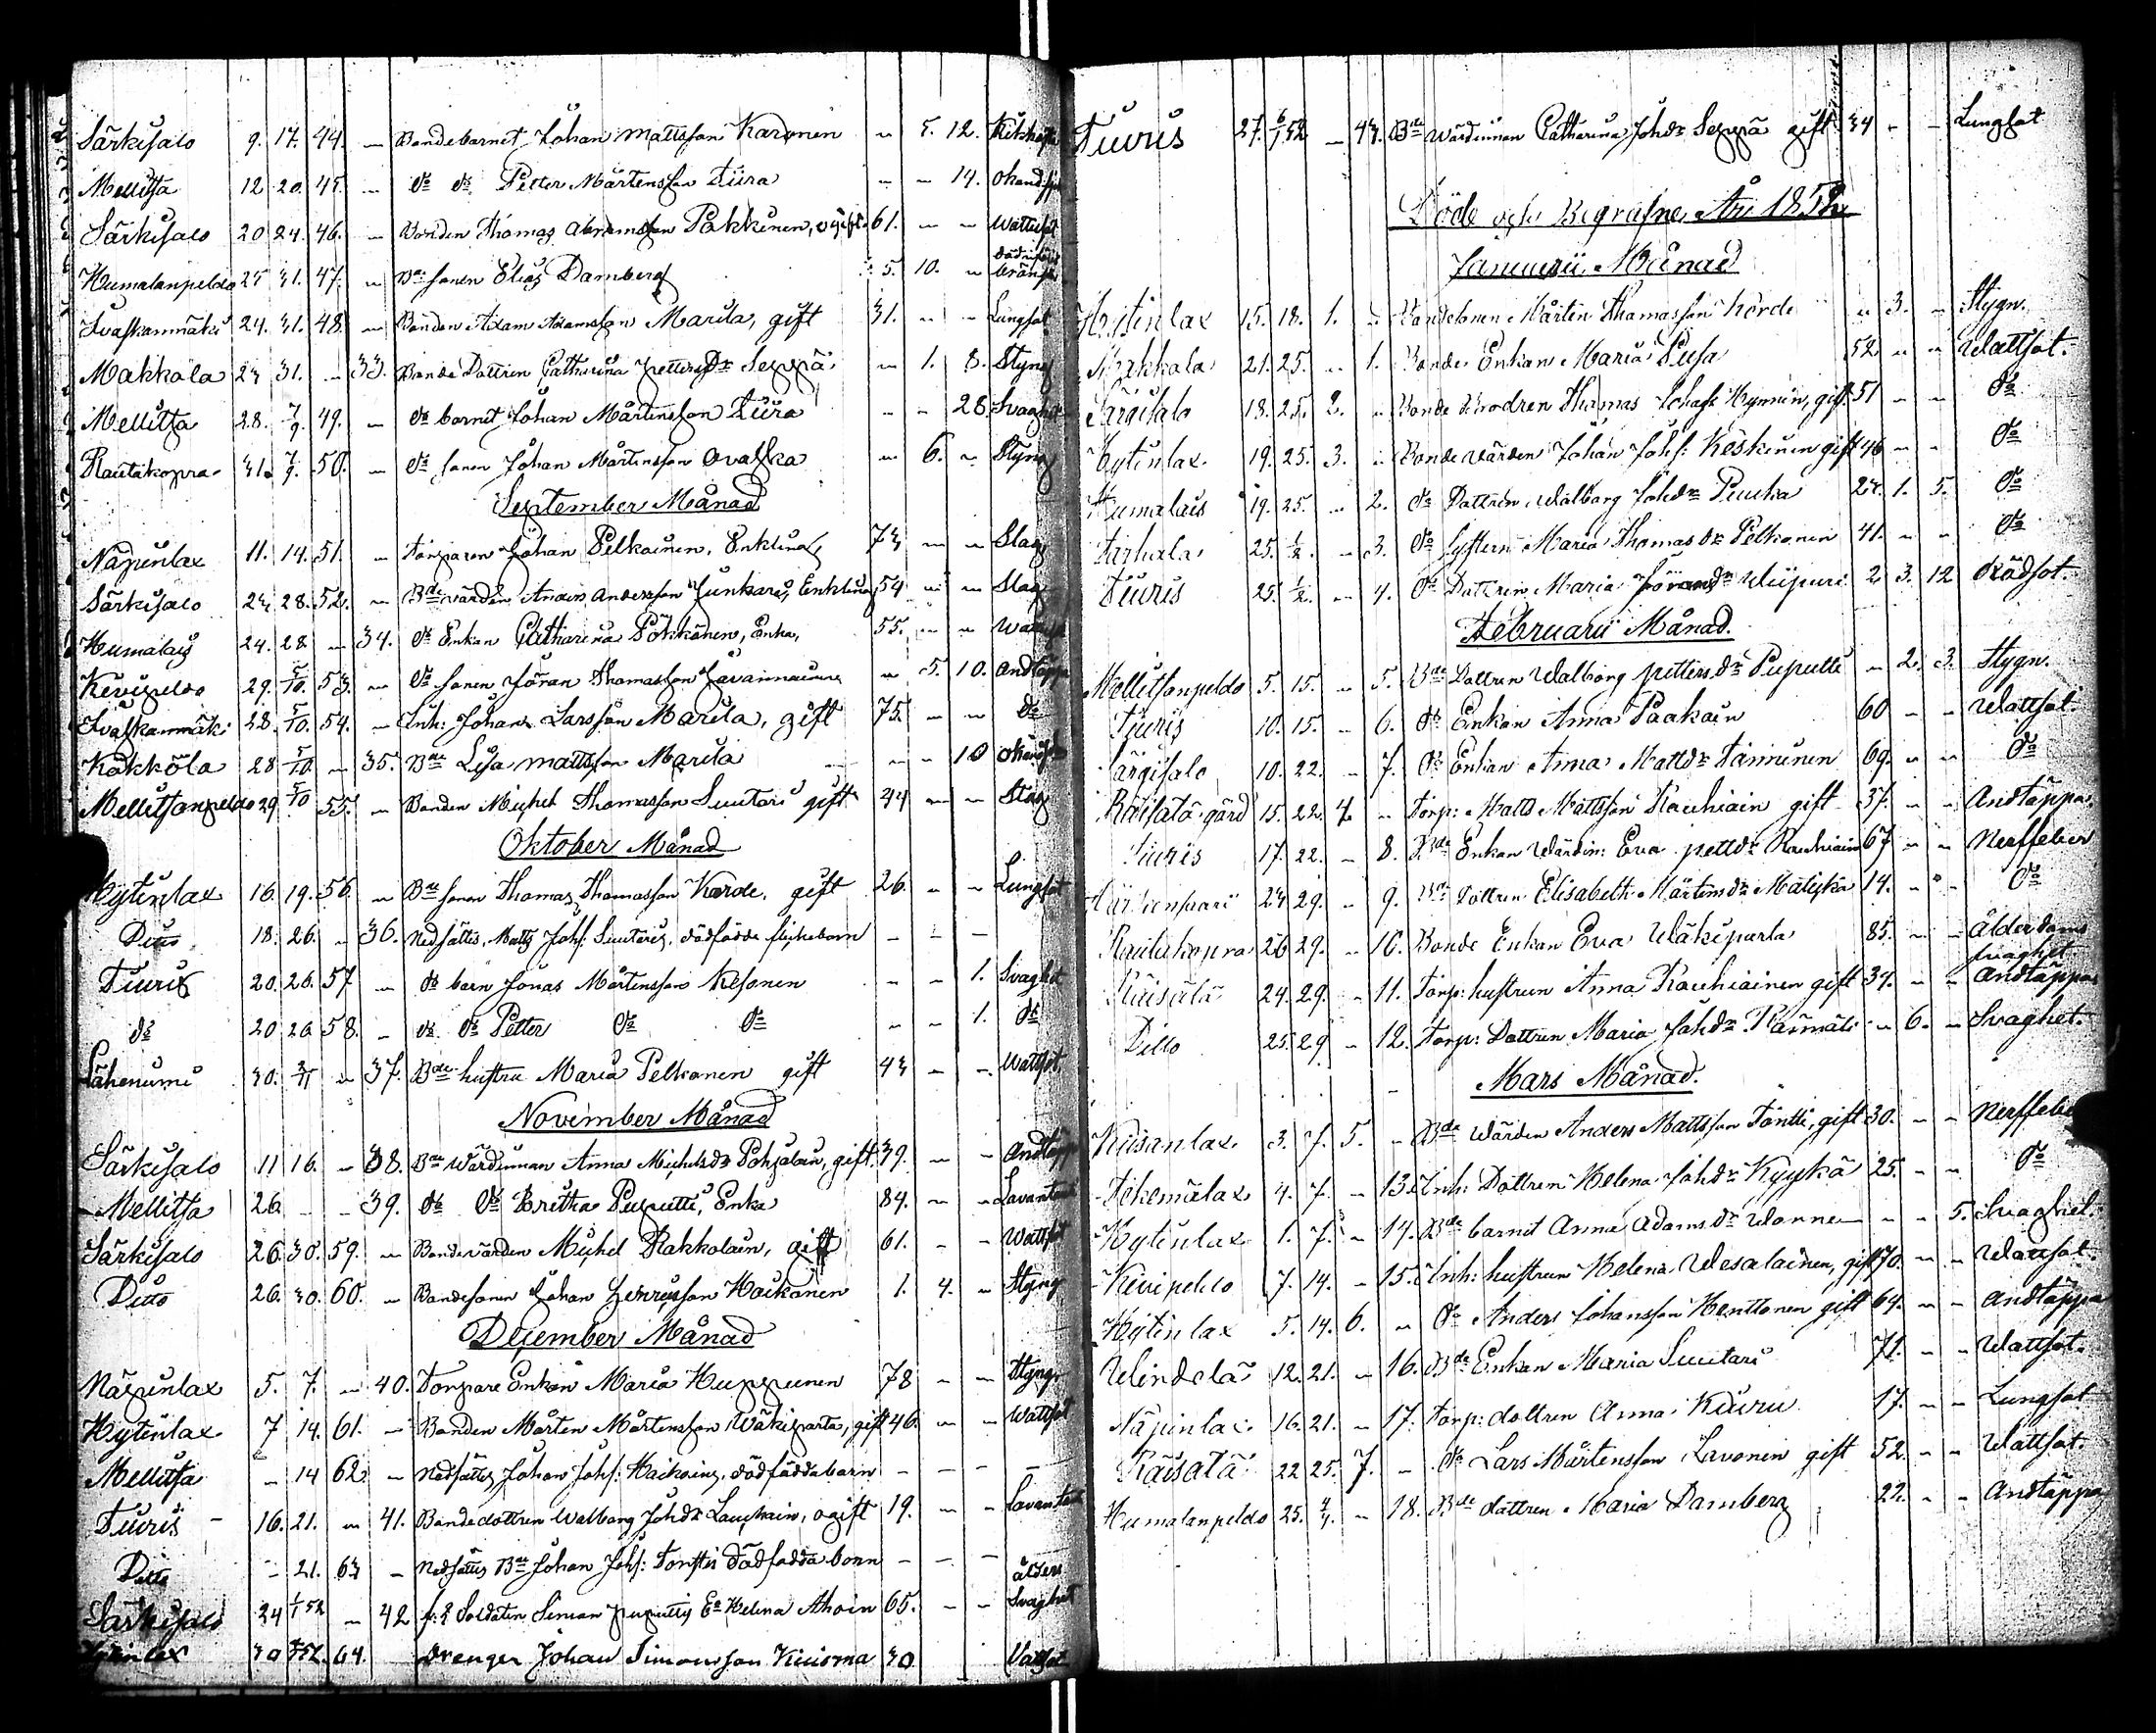 Särkisalo 9. 17. 44. — Bondebarnet Johan Mattsson Karonen — 5. 12.
Mellitsa 12 20. 45. — do do Petter Mårtensson Tiira — — 14. okänd
Särkisalo 20 24. 46. — Bonden Thomas Abramsson Pakkinen, ogift. 61. — — Wattusot
Humalanpeldo 25 31. 47. — Bde sonen Elias Damberg 5. 10. —
24. 31. 48. — Bonden Adam Adamsson Marila, gift 31. — — Lungsot
Makkola 23 31. — 33. Bonde Dottren Catharina Pettersdr Seppä — 1. 8. Styng
Mellitsa 28. 7/9. 49. — do barnet Johan Mårtensson Tiira — — 28. Svaghet
Rautakopra 31. 7/9. 50. — do sonen Johan Mårtensson Ovaska — 6. — Styng
September Månad
Näpinlax 11. 14. 51. — Torparen Johan Pelkoinen, Enkling, 73 — — Slag
Särkisalo 23. 28. 52. — Bde värden Anders Andersson Junkari, Enkling 54 — — Slag
Humalais 24. 28 — 34. do Enkan Catharina Pökkönen, Enka, 55. — —
Kevipeldo 29. 5/10. 53. — do sonen Jöran Thomasson — 5. 10. Andtäppa
28. 5/10. 54. — Inh: Johan Larsson Marila, gift 75. — — do
Kokköla 28 5/10 — 35. Bde Lisa Mattsson Marila — — 10
Mellitsanpeldo 29 5/10 55. — Bonden Michel Thomasson Suutari gift 44 — — Slag
Oktober Månad
Hytinlax 16. 19. 56. — Bde sonen Thomas Thomasson Korde, gift 26. — — Lungsot
Ditto 18. 26. — 36. Nedsättes, Matts Johs: Suutaris, dödfödde flickebarn — — —
Tiuris 20. 26. 57 — do barn Jonas Mårtensson Kesonen — — 1. Svaghet
do 20 26 58. — do do Petter do do — — 1. do
30. 2/11 — 37. Bde hustru Maria Pelkonen gift 43 — — Wattsot
November Månad
Särkisalo 11 16. — 38. Bde Wärdinnan Anna Michelsdr Pohjalain, gift. 39. — — Andtäppa
Mellitsa 26. — — 39. do do Britha Puputti, Enka 84. — —
Särkisalo 26 30. 59. — Bondevärden Michel Rakkolain, gift 61. — — Wattsot
Ditto 26. 30. 60. — Bondesonen Johan Henrichsson Haikonen 1. 4. — Styng
December Månad
Näpinlax 5. 7. — 40. Torpare Enkan Maria Huppunen 78 — — Styng
Hytinlax 7 14. 61. — Bonden Mårten Mårtensson Wäkiparta, gift 46. — — Wattsot
Mellitsa — 14 62. — Nedsättes Johan Johs: Haikoins, dödföddabarn — — — —
Tiuris 16. 21. — 41. Bondedottren Walborg Johdr Lauhain, ogift 19. — —
Ditto — 21. 63 — Nedsättes Bde Johan Johs: Tonttis Dödfödda barn — — —
Särkisalo 24 1/1 52 — 42 f: d Soldaten Simon Puputtis Ea Helena Ahoin 65. — — ålders Svaghet
Hytinlax 30 52. 64. Drengen Johan Simonsson Kuisma 30 Vattsot
Tiuris 27. 6/1 52 — 43. Bde Wärdinnan Catharina Johdr Seppä gift 34 — — Lungsot
Döde och Begrafne År 1852
Januarii Månad
Hytinlax 15. 18. 1. — Bondesonen Mårten Thomasson Korde — 3. — Stygn.
Makkola 21. 25. — 1. Bonde Enkan Maria Pusa 52 — — Wattsot.
Särgisalo 18. 25. 2. — Bonde Brodren Thomas Johaf Hynninen, gift. 51 — — do
Hytinlax 19. 25. 3. — Bondevärden Johan Johs: Koskinen gift 46 — — do
Humalais 19. 25. — 2. do Dottren Walborg Johdr Puuka 24. 1. 5. do
25. 1/2. — 3. do Systern Maria Thomasdr Pelkonen 41. — — do
Tiuris 25. 1/2. — 4. do Dottren Maria Jöransdr Wiipuri 2 3. 12 Rödsot.
Februarii Månad.
Mellitsanpeldo 5. 15. — 5. Bde Dottren Walborg Pettersdr Puputti — 2. 3. Stygn.
Tiuris 10. 15. — 6. do Enkan Anna Paakain 60 — — Wattsot.
Särgisalo 10. 22. — 7. do Enkan Anna Mattdr Tanninen 69. — — do
Räisälä gård 15. 22. 4. — Torp: Matts Mattsson Rauhiain gift 37. — — Andtäppa
Tiuris 17. 22. — 8. Bde Enkan Wärdin: Eva Pettdr Rauhiain 67 — — Nerffeber
24 29. — 9. Bde Dottren Elisabeth Mårtensdr Matiska 14. — — do
Rautukopra 26 29. — 10. Bonde Enkan Eva Wäkiparta 85. — — Ålderdoms svaghet
Räisälä 24. 29. — 11. Torp: hustrun Anna Rauhiainen gift 34. — — Andtäppa
Ditto 25. 29 — 12. Torp: Dottren Maria Johdr — 6. — Svaghet.
Mars Månad.
3. 7. 5. — Bde Wärden Anders Mattsson Tontti, gift 30. — — Nerffeber
4. 7. — 13. Inh: Dottren Helena Johdr Kyykä 25. — — do
Hytinlax 1. 7. — 14. Bde barnet Anna Adamsdr — — 5. Svaghet.
Kevipeldo 7. 14. — 15. Inh: hustrun Helena Wesalainen, gift 70. — — Wattsot.
Hytinlax 5. 14. 6. — do Anders Johansson Henttonen gift 64. — — Andtäppa
Windela 12. 21. — 16. Bde Enkan Maria Suutari 71. — — Wattsot.
Näpinlax 16. 21. — 17. Torp: dottren Anna Kauru 17. — — Lungsot
Räisälä 22 25. 7. — do Lars Mårtensson Lavonen gift 52. — — Wattsot.
Humalanpeldo 25. 4/4. — 18. Bde dottren Maria Damberg 22. — — Andtäppa